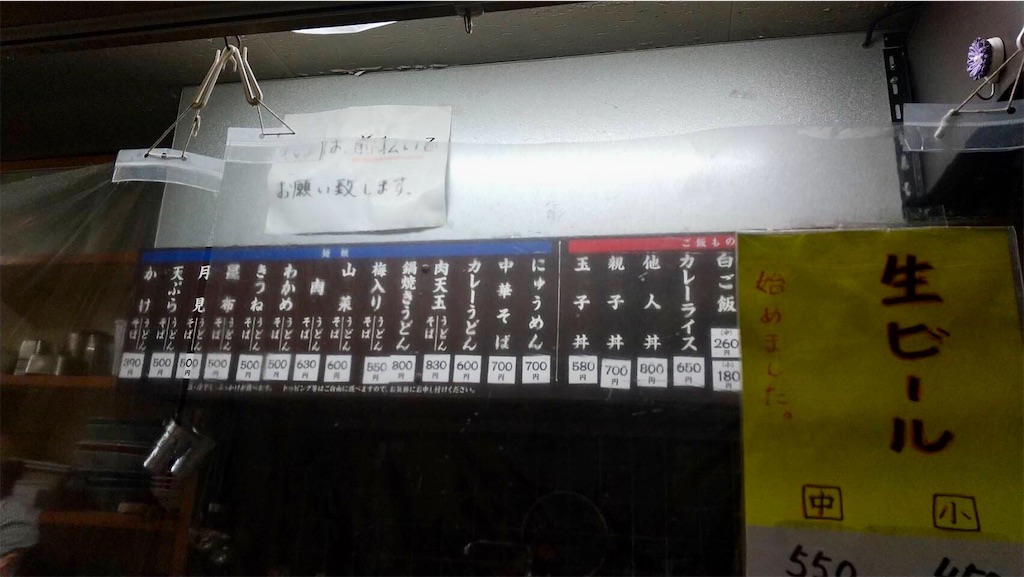 は、前払いで
お願い致します。
麺類
かけ うどん そば 390
天ぷら うどん そば 500
月見 うどん そば 500
昆布 うどん そば 500
きつね うどん そば 500
わかめ うどん そば 500
肉 うどん そば 630
山菜 うどん そば 600
梅入り うどん そば 550円
鍋焼きうどん 800円
肉天玉 うどん そば 830円
カレーうどん 600円
中華そば 700円
にゅうめん 700円
ご飯もの
玉子丼 580円
親子丼 700円
他人丼 800円
カレーライス 650円
白ご飯 (中) 260円 (小) 180円
トッピング等はご自由に選べますので、お気軽にお申し付けください。
生ビール
始めました。
中 小
550